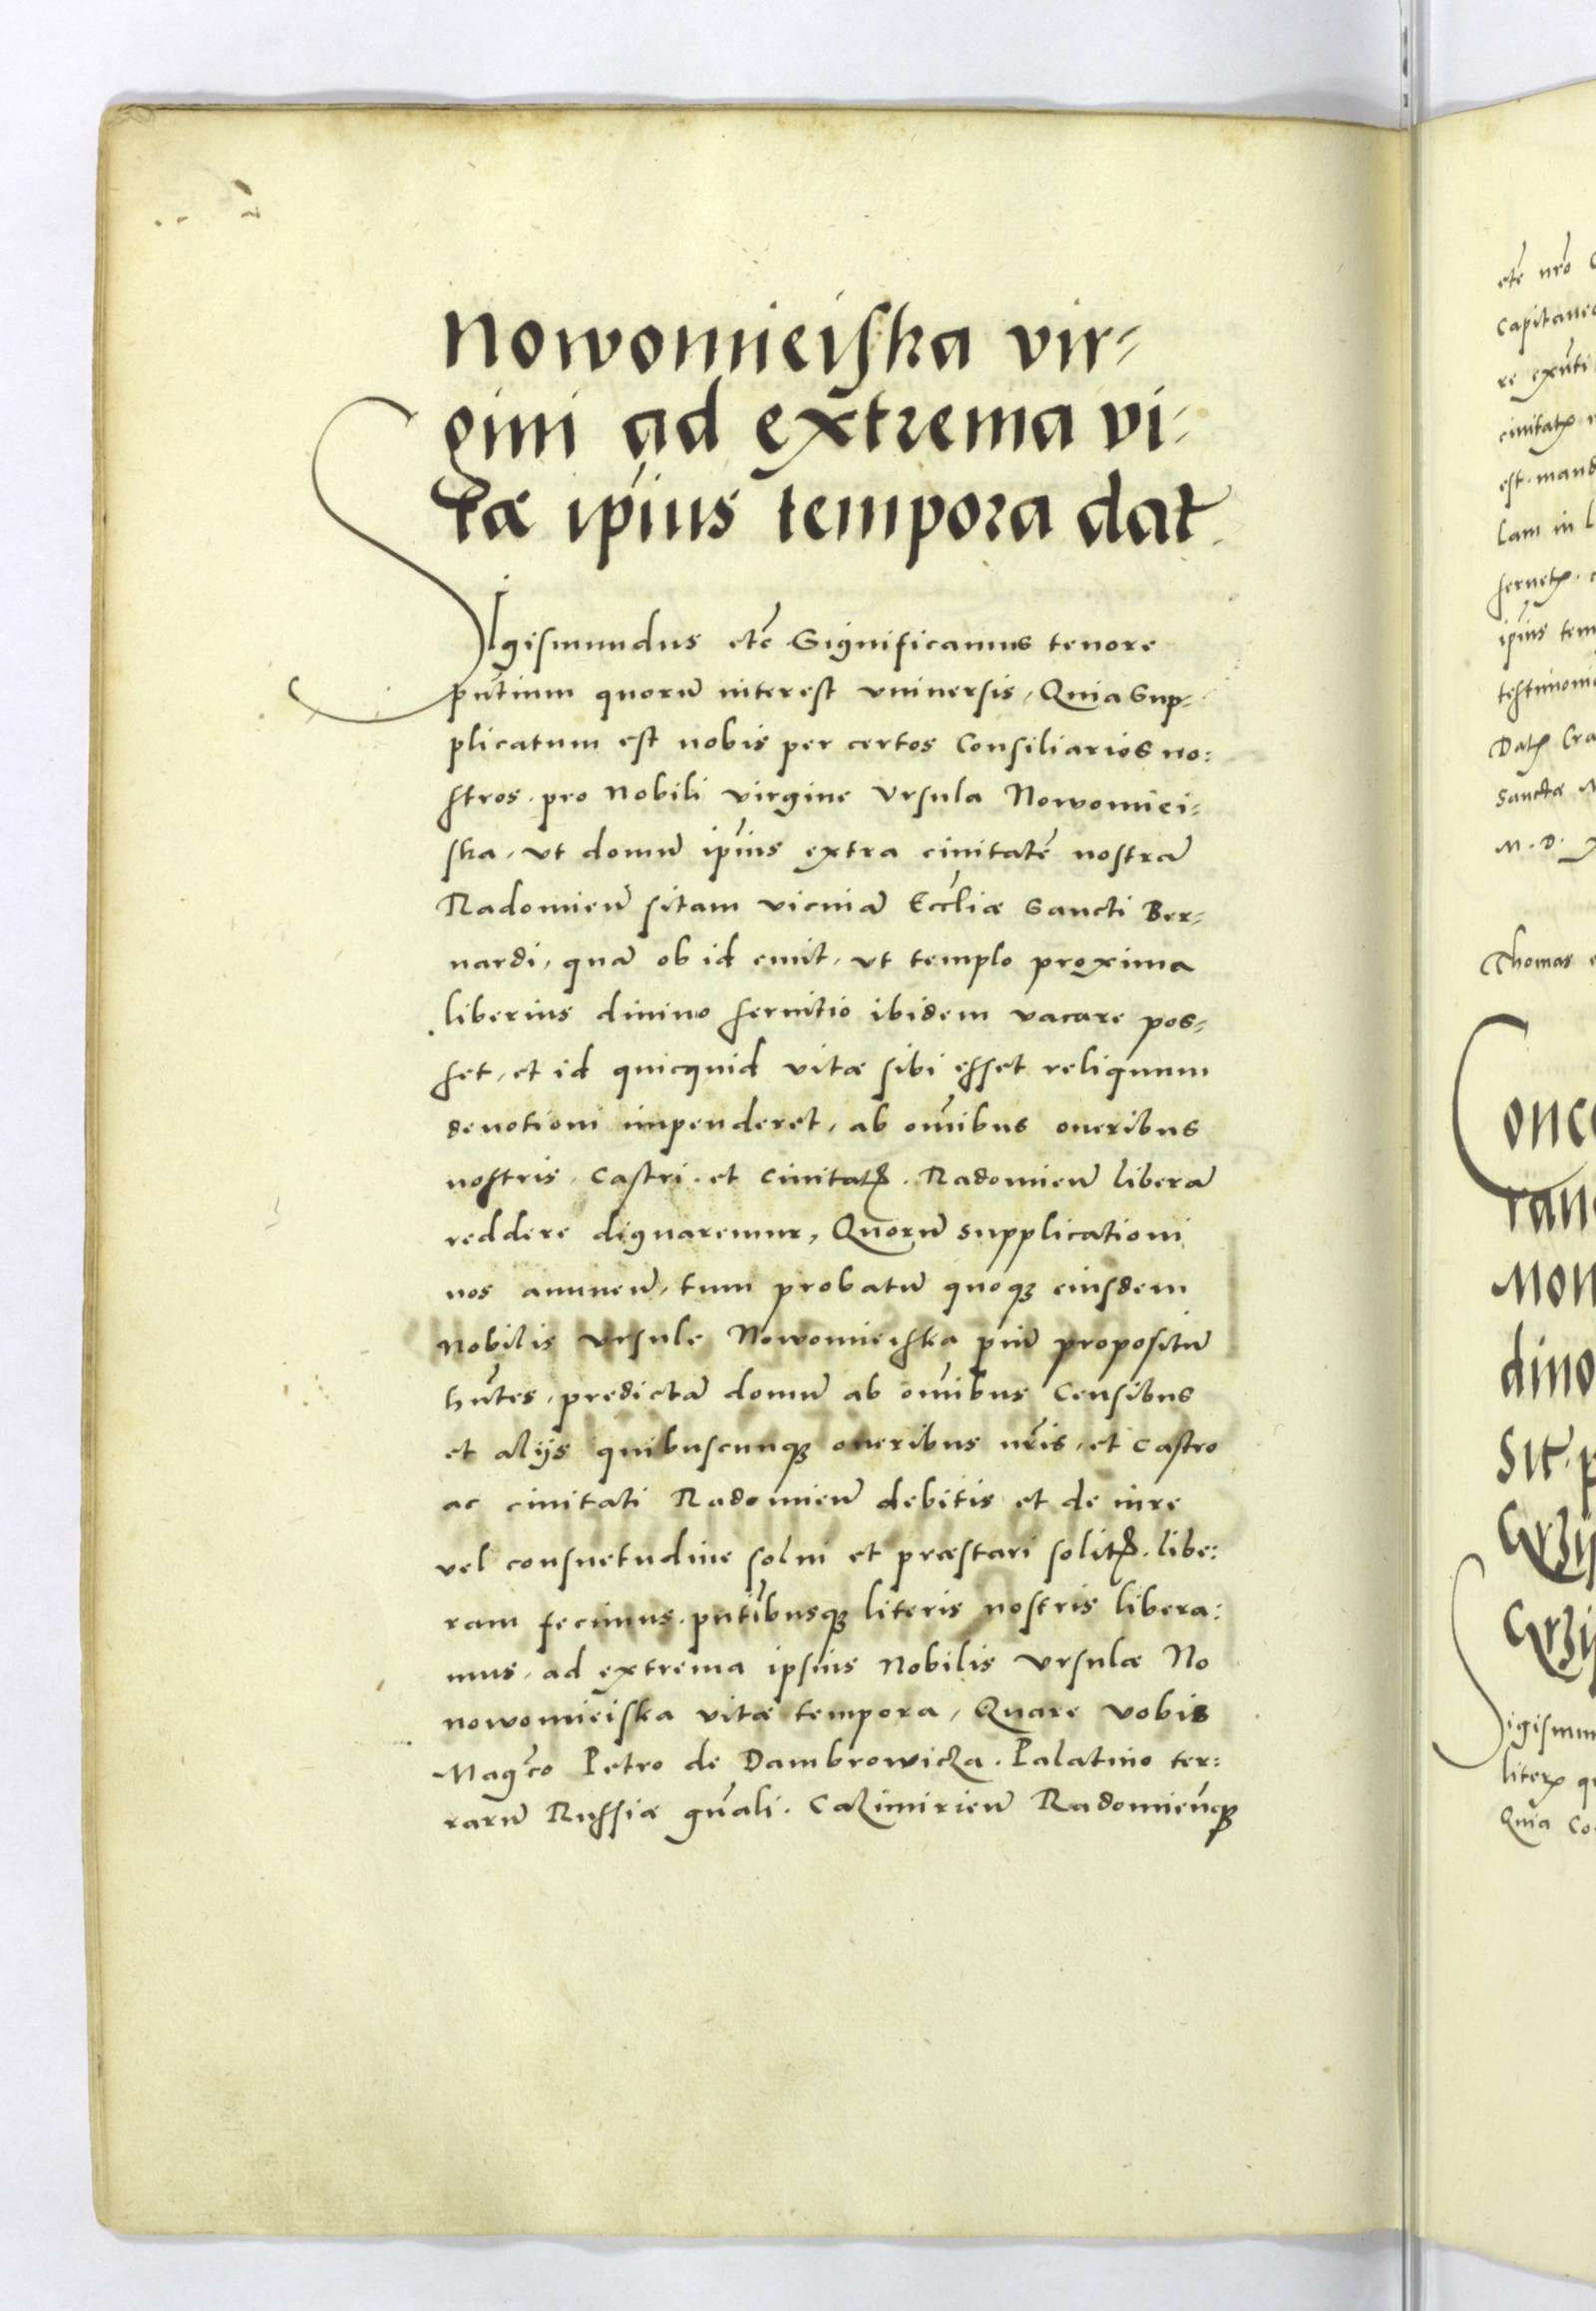 Nowomieiska vir-
gini ad extrema vi-
tæ ip̃ius tempora dat.
Sigismundus etc̃ Significamus tenore
pñtium quorũ interest vniuersis, Quia Sup-
plicatum est nobis per certos Consiliarios no:
stros. pro Nobili virgine Vrsula Nowomiei-
ska, vt domũ ip̃ius extra ciuitatẽ nostrã
Radomieñ sitam viciniã Eccl̃iæ Sancti Ber-
nardi, quã ob id emit, vt templo proxima
liberius diuino seruitio ibidem vacare pos-
set, et id quicquid vitæ sibi esset reliquum
deuotioni impenderet, ab om̃ibus oneribus
nostris, Castri. et Ciuitatꝭ. Radomieñ liberã
reddere dignaremur, Quorũ supplicationi
nos annueñ, tum probatũ quoqꝫ eiusdem
Nobilis Vrsule Nowomieiska piũ propositũ
hñtes, predictã domũ ab om̃ibus Censibus
et alijs quibuscunqꝫ oneribus nr̃is, et Castro
ac ciuitati Radomieñ debitis et de iure
vel consuetudine solui et præstari solitꝭ. libe:
ram fecimus. pñtibusqꝫ literis nostris libera:
mus, ad extrema ipsius Nobilis Vrsulæ No
nowomieiska vitæ tempora, Quare vobis
Mag̃co Petro de Dambrowicza. Palatino ter:
rarũ Russiæ gñali. Cazimirieñ Radomieñqꝫ
etc̃ nr̃o
Capitaneo
re exñti
ciuitatꝭ
est. mand
lam in l
seruetꝭ.
ip̃ius tem
testimoni
Datꝭ Cra
Sanctæ
M. D.
Thomas
Conce
ran
Mon
dino
sit. p
Sigismun
literꝭ qu
Quia Co